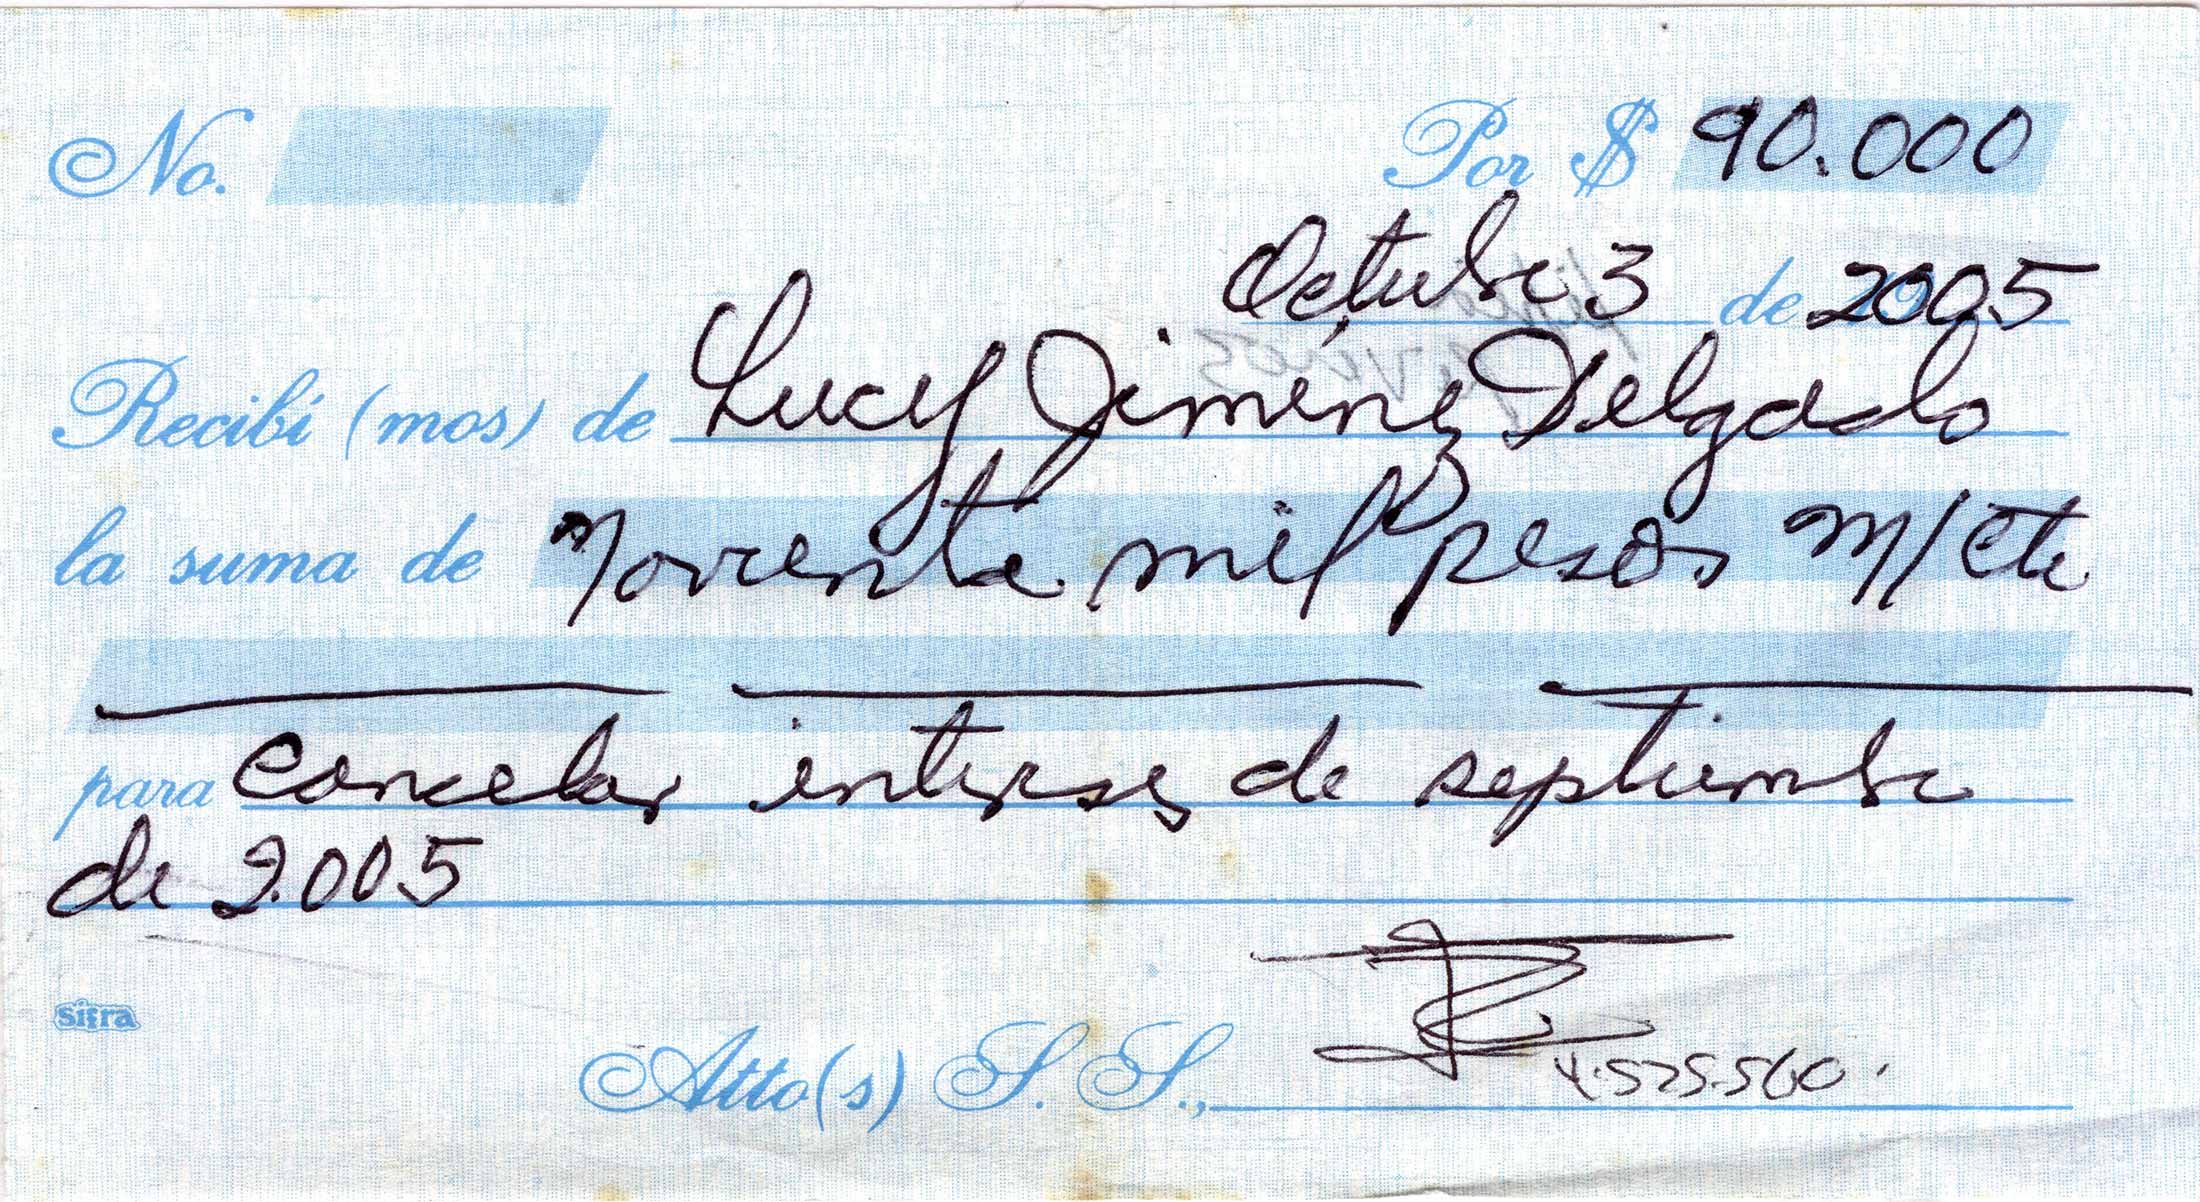 No. Por $ 90.000
Octubre 3 de 2005
Recibí (mos) de Lucy Jiménez Delgado
la suma de Noventa mil pesos m/cte
para Cancelar intereses de septiembre
de 2.005
sifra
Atto(s) S. S., 4.525.560.